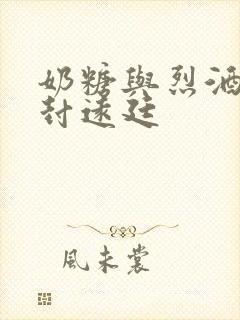 奶糖與烈酒
封遠廷
風未裳